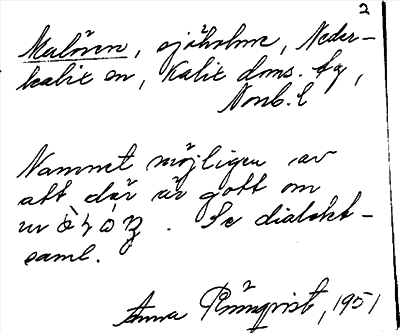 2
Malören, sjöholme, Neder-
kalix sn, Kalix doms. fg,
Norrb. l
Namnet möjligen av
att där är gott om
. Se dialekt-
saml.
Anna Rönnqvist, 1951